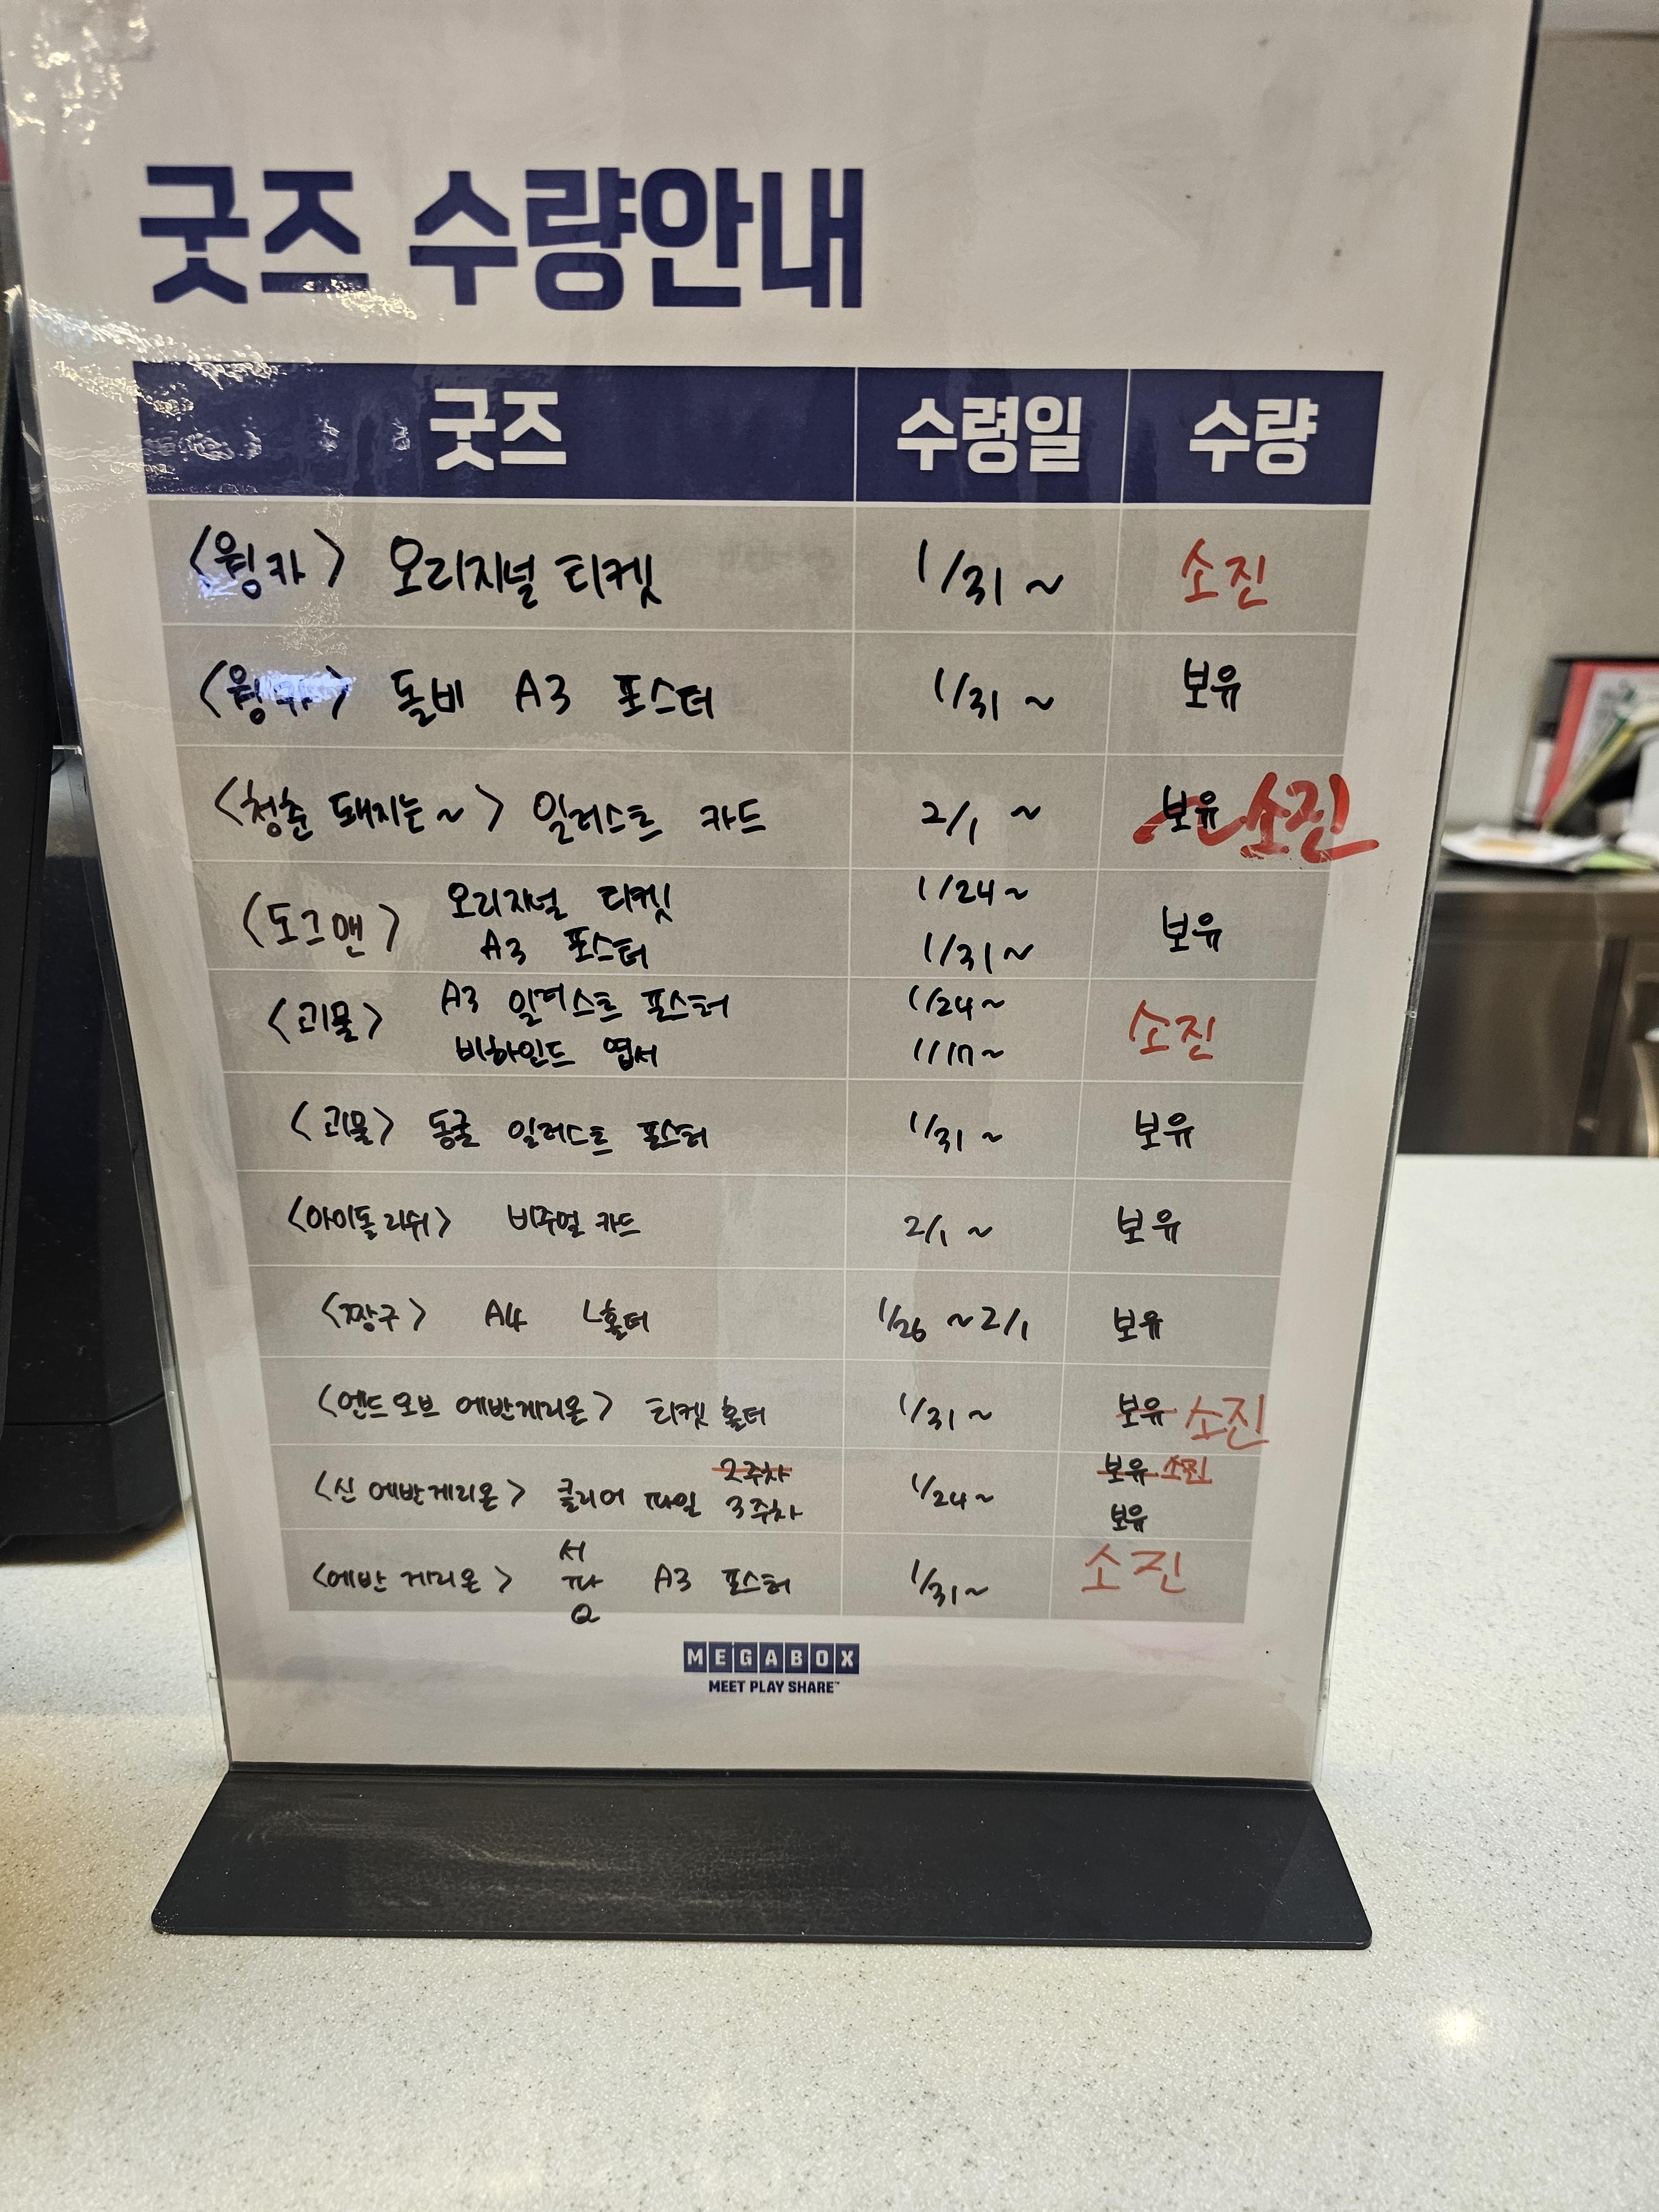 굿즈 수량안내
굿즈 수령일 수량
<웡카> 오리지널 티켓 1/31 ~ 소진
<웡카> 돌비 A3 포스터 1/31 ~ 보유
<청춘 돼지는~> 일러스트 카드 2/1 ~ 보유 소진
<도그맨> 오리지널 티켓 1/24 ~ 보유
A3 포스터 1/31 ~
<괴물> A3 일러스트 포스터 1/24 ~ 소진
비하인드 엽서 1/17 ~
<괴물> 동굴 일러스트 포스터 1/31 ~ 보유
<아이돌리쉬> 비주얼 카드 2/1 ~ 보유
<짱구> A4 L홀더 1/26 ~ 2/1 보유
<엔드오브 에반게리온> 티켓 홀더 1/31 ~ 보유 소진
<신 에반게리온> 클리어 파일 2주차 1/24 ~ 보유 소진
3주차 보유
<에반게리온> 서 파 Q A3 포스터 1/31 ~ 소진
MEGABOX
MEET PLAY SHARE™